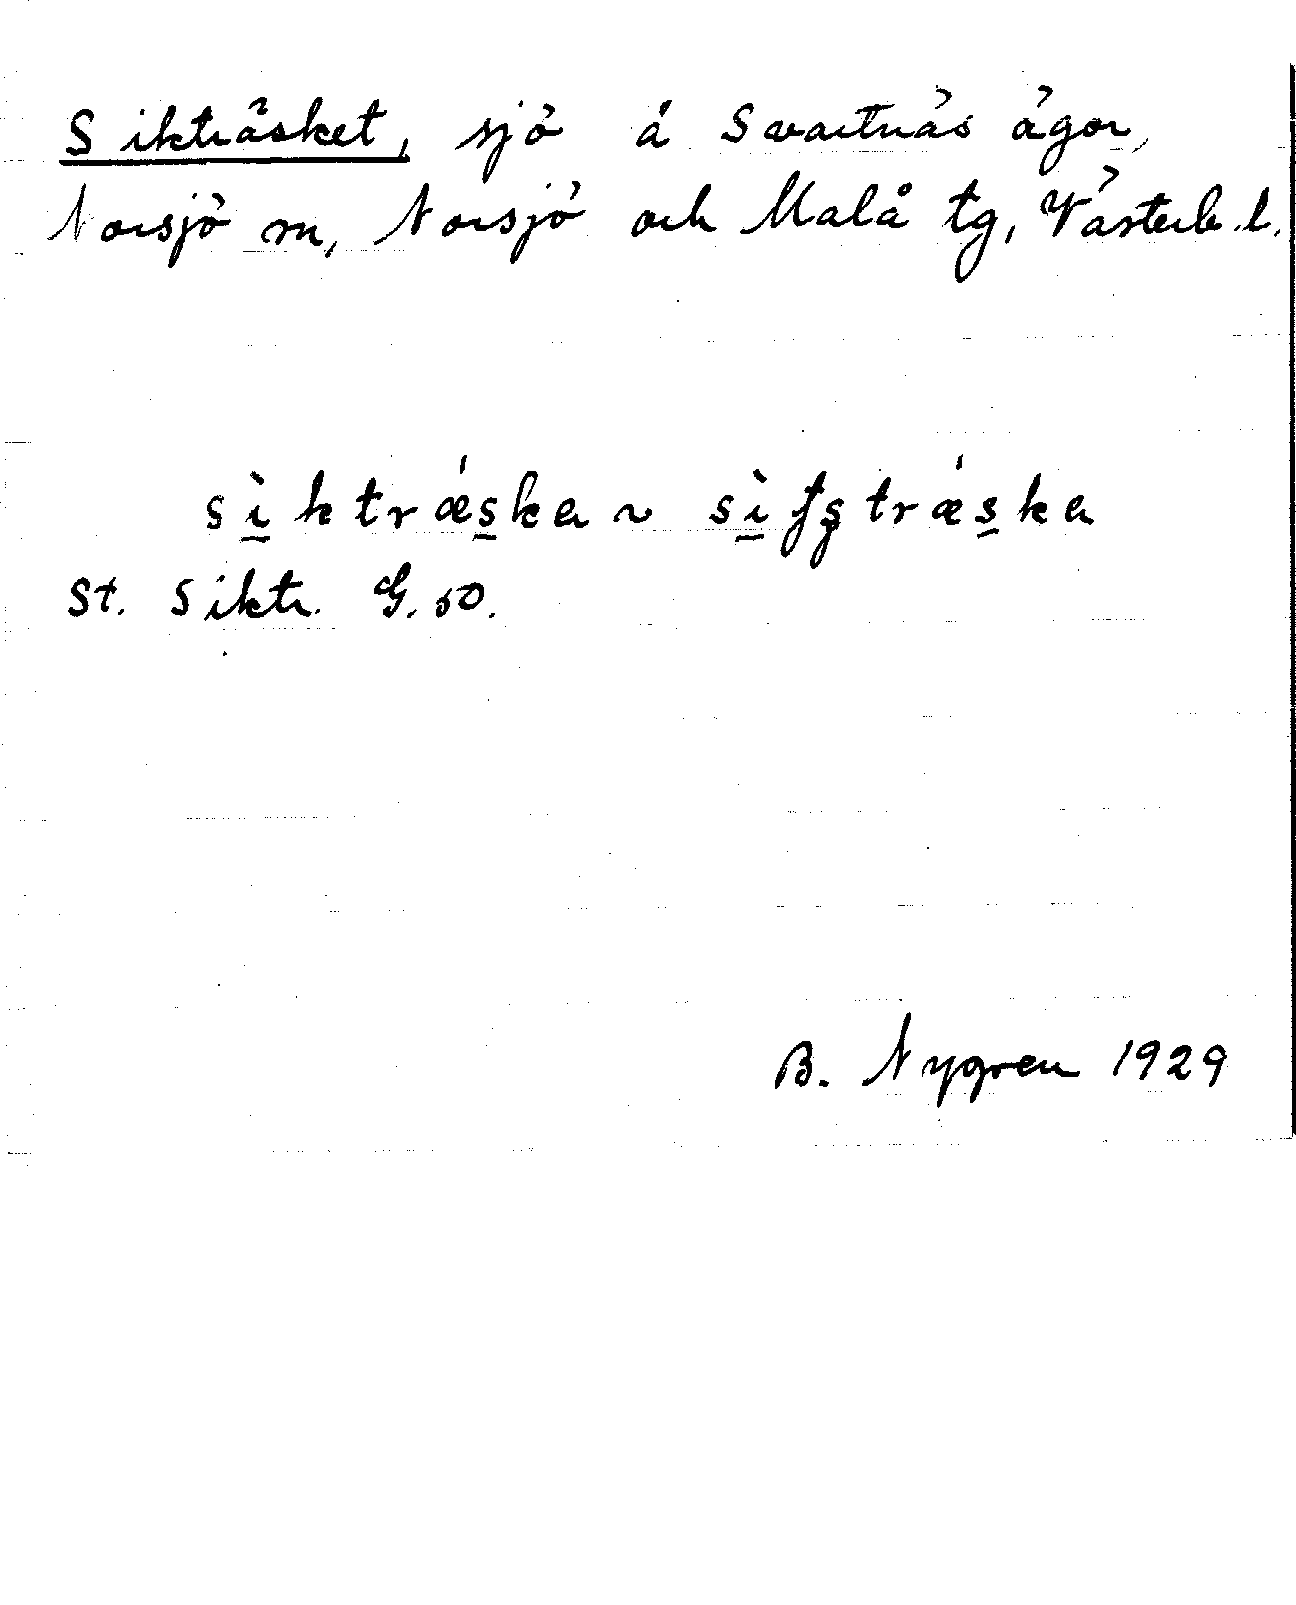 Sikträsket, sjö å Svartnäs ägor,
Norsjö sn, Norsjö och Malå tg, Västerb. l.
sìktrǽska ~ sìftʂtrǽska
St. Siktr. G. 50.
B. Nygren 1929